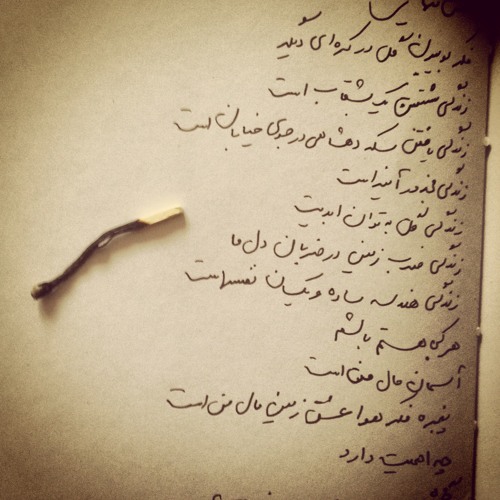 فکر بوییدن گل در کره‌ای دیگر
زندگی شستن یک بشقاب است
زندگی یافتن سکه دهشاهی در جوی خیابان است
زندگی مجذور آینه است
زندگی گل به توان ابدیت
زندگی ضرب زمین در ضربان دل ما
زندگی هندسه ساده و یکسان نفسهاست
هر کجا هستم باشم
آسمان مال من است
پنجره فکر هوا عشق زمین مال من است
چه اهمیت دارد